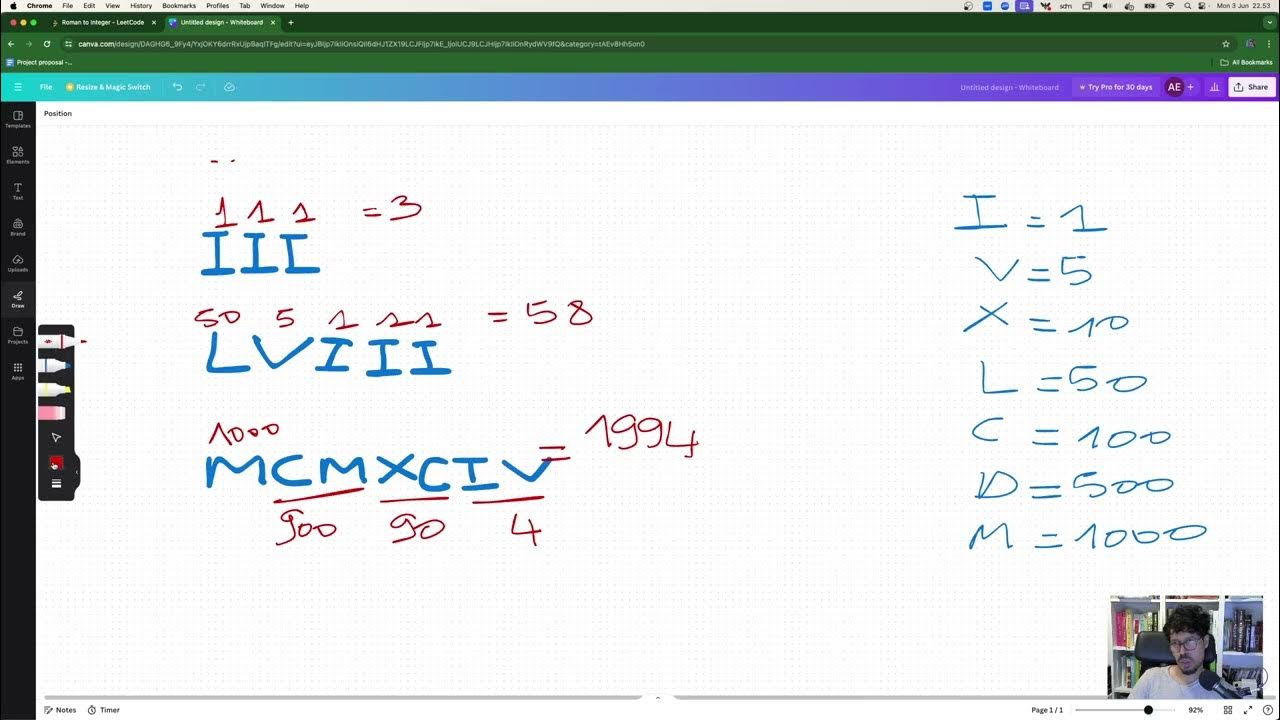 Chrome File Edit View History Bookmarks Profiles Tab Window Help
Mon 3 Jun 22.53
Roman to Integer - LeetCode
Untitled design - Whiteboard
Project proposal -...
All Bookmarks
File
Resize & Magic Switch
Untitled design - Whiteboard
Try Pro for 30 days
AE
Share
Position
Templates
Elements
Text
Brand
Uploads
Draw
Projects
Apps
1 1 1 = 3
III
50 5 1 1 1 = 58
LVIII
1000
MCMXCIV = 1994
900 90 4
I = 1
V = 5
X = 10
L = 50
C = 100
D = 500
M = 1000
Notes
Timer
Page 1 / 1
92%